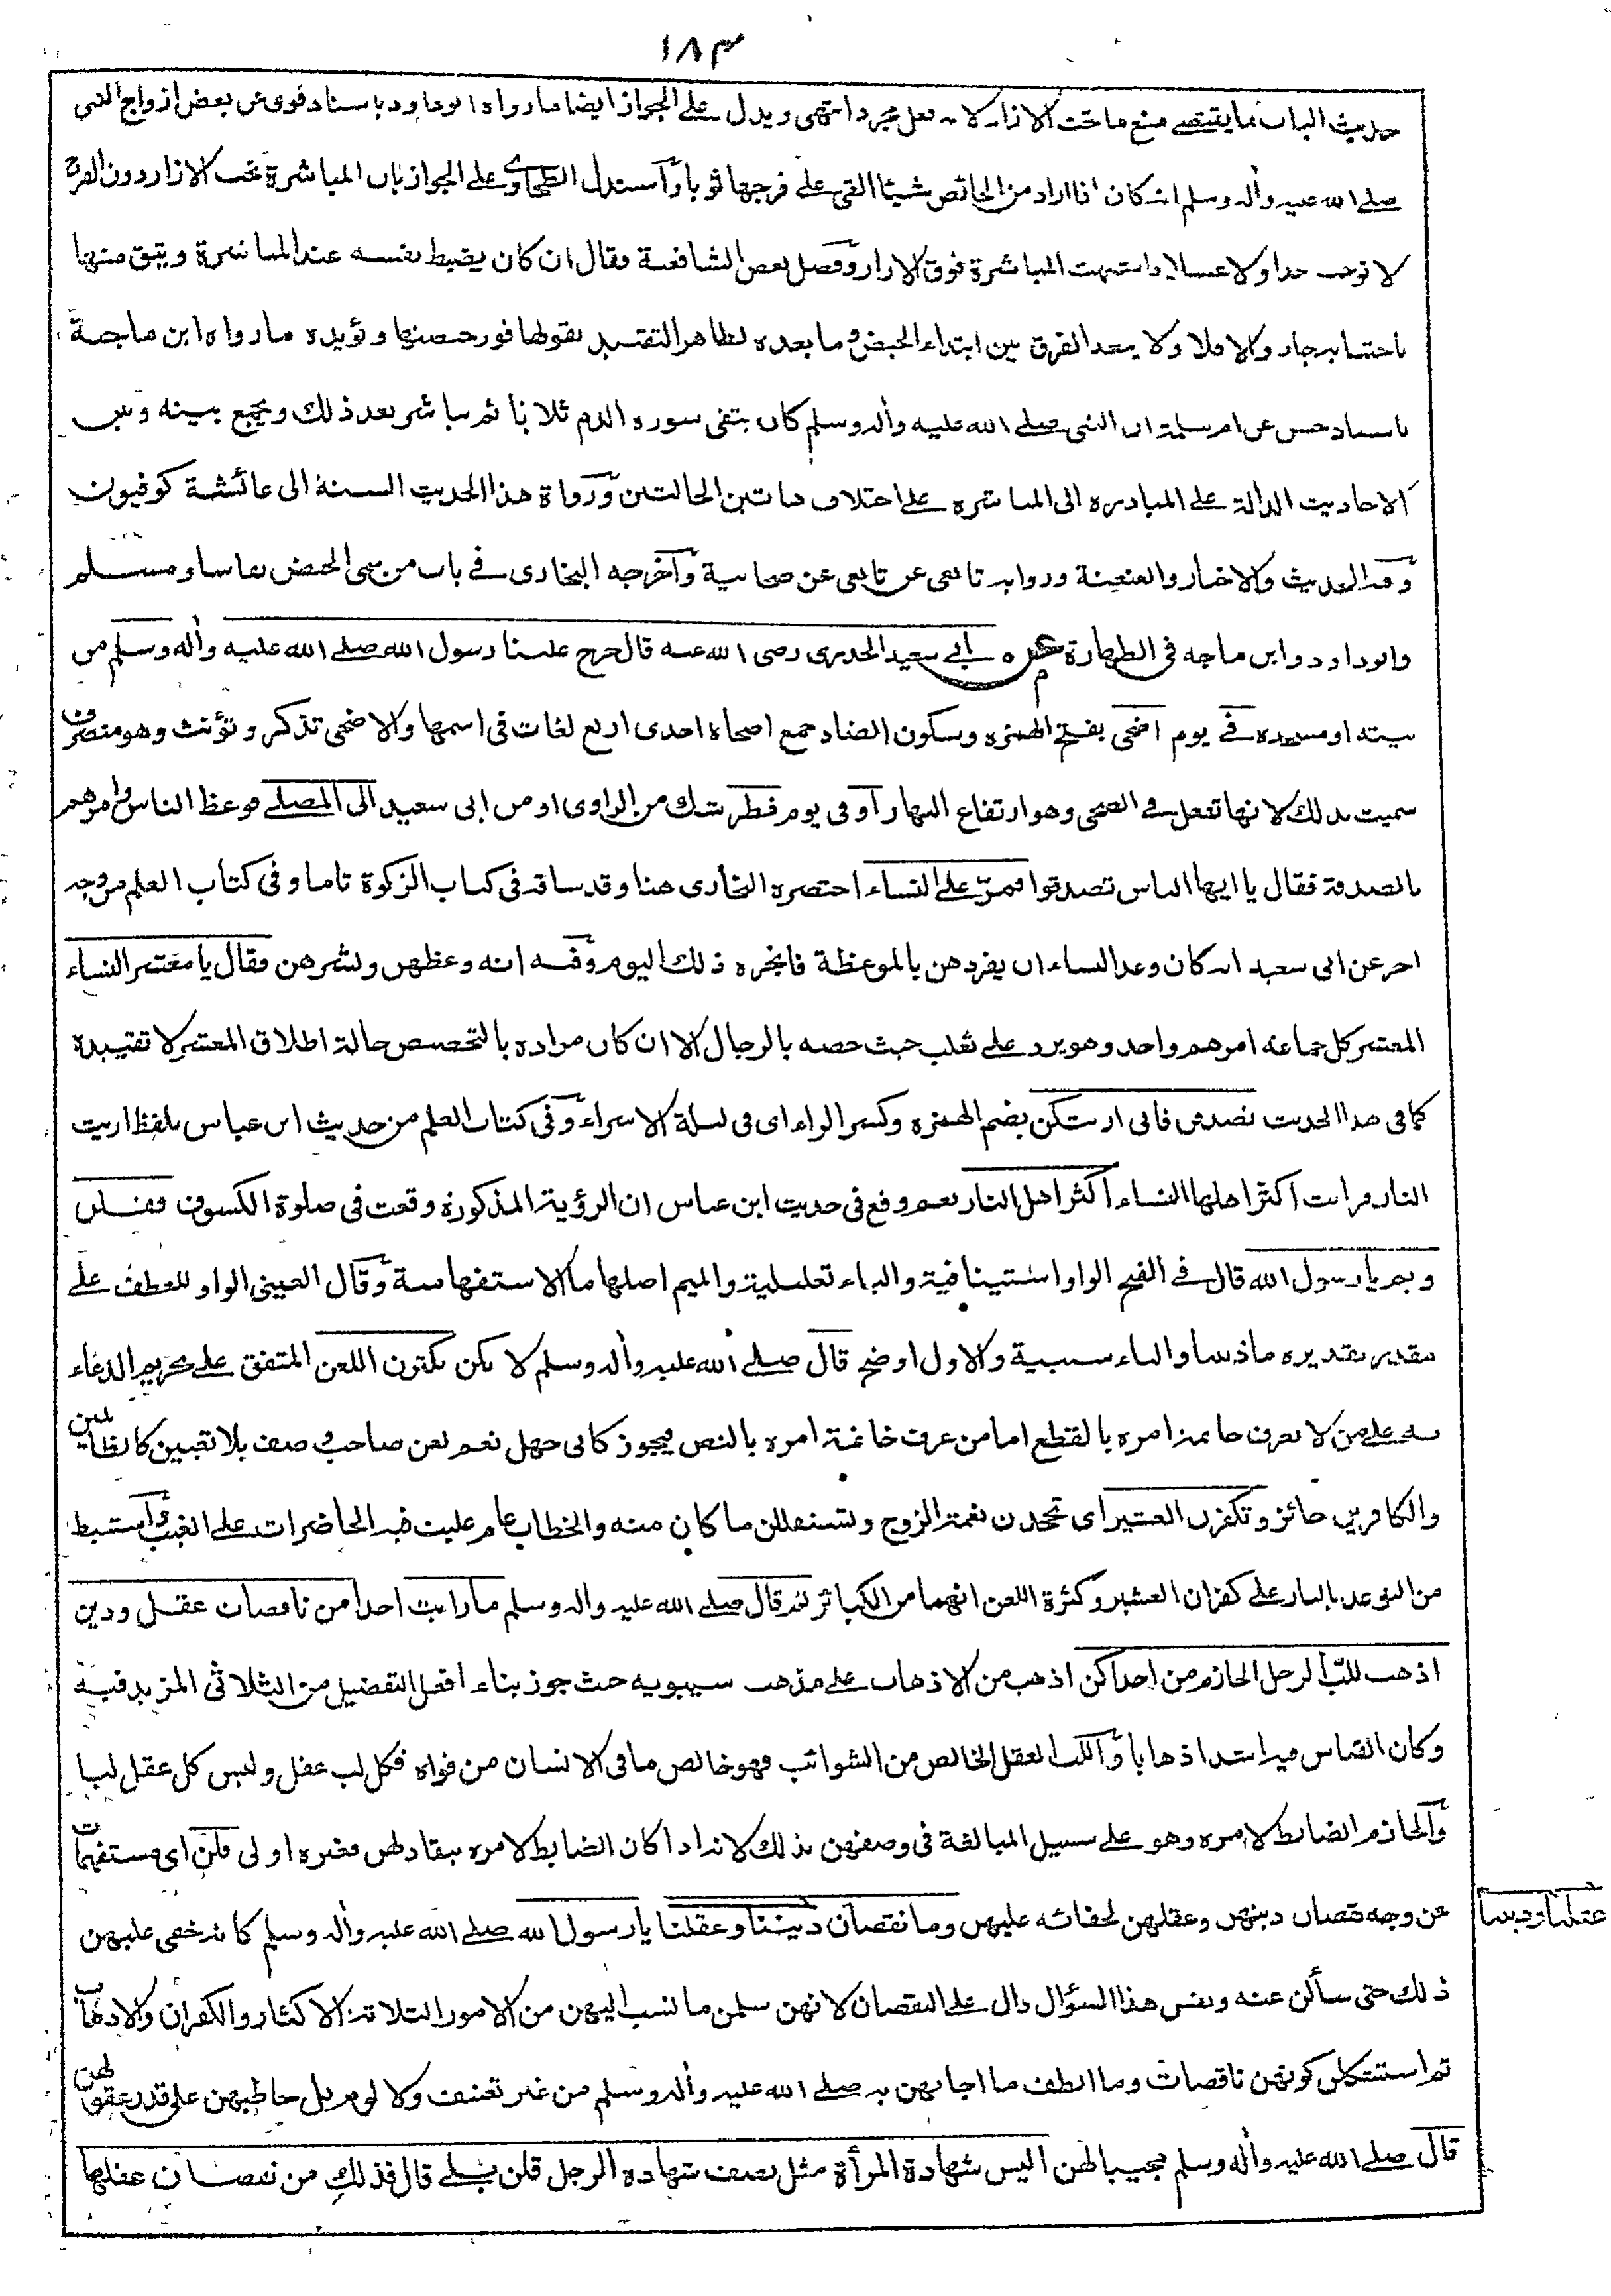 ١٨٣
حديث الباب ما يقتضي منع ما تحت الازار لانه فعل مجرد انتهى ويدل على الجواز ايضا ما رواه ابوداود باسناد قوى عن بعض ازواج النبى
صلى الله عليه وأله وسلم انه كان اذا اراد من الحائض شيئا القى على فرجها ثوبا وآستدل الطحاوى على الجواز بان المباشرة تحت الازار دون الفرج
لا توجب حدا ولا غسلا فاشبهت المباشرة فوق الازار وفصل بعض الشافعية فقال ان كان يضبط نفسه عند المباشرة ويثق منها
باجتنابه جاز والا فلا ولا يبعد الفرق بين ابتداء الحيض وما بعده لظاهر التقييد بقولها فور حيضتها ويؤيده ما رواه ابن ماجة
باسناد حسن عن ام سلمة ان النبى صلى الله عليه وأله وسلم كان يتقى سورة الدم ثلاثا ثم يباشر بعد ذلك ويجمع بينه وبين
الاحاديث الدالة على المبادرة الى المباشرة على اختلاف هاتين الحالتين ورواة هذا الحديث الستة الى عائشة كوفيون
وفيه التحديث والاخبار والعنعنة ورواية تابعى عن تابعى عن صحابية وأخرجه البخارى فى باب من سمى الحيض نفاسا ومسلم
وابوداود وابن ماجه فى الطهارة عن ابى سعيد الخدرى رضى الله عنه قال خرج علينا رسول الله صلى الله عليه وأله وسلم من
بيته او مسجده فى يوم اضحى بفتح الهمزه وسكون الضاد جمع اضحاة احدى اربع لغات فى اسمها والاضحى تذكر وتؤنث وهو منصرف
سميت بذلك لانها تفعل فى الضحى وهو ارتفاع النهار أو فى يوم فطر شك من الراوى او من ابى سعيد الى المصلى فوعظ الناس وامرهم
بالصدقة فقال يا ايها الناس تصدقوا فمرّ على النساء اختصره البخارى هنا وقد ساقه فى كتاب الزكوة تاما وفى كتاب العلم من وجه
اخر عن ابى سعيد انه كان وعد النساء ان يفردهن بالموعظة فانجزه ذلك اليوم وفيه انه وعظهن وبشرهن فقال يا معشر النساء
المعشر كل جماعة امرهم واحد وهو يرد على ثعلب حيث خصه بالرجال الا ان كان مراده بالتخصيص حالة اطلاق المعشر لا تقييده
كما فى هذا الحديث تصدقن فانى اريتكن بضم الهمزه وكسر الراء اى فى ليلة الاسراء وفى كتاب العلم من حديث ابن عباس بلفظ اريت
النار فرايت اكثر اهلها النساء اكثر اهل النار نعم وقع فى حديث ابن عباس ان الرؤية المذكورة وقعت فى صلوة الكسوف فقلن
وبم يا رسول الله قال فى الفتح الواو استينافية والباء تعليلية والميم اصلها ما الاستفهامية وقال العينى الواو للعطف على
مقدر تقديره ما ذنبنا والباء سببية والاول اوضح قال صلى الله عليه وأله وسلم لانكن تكثرن اللعن المتفق على تحريم الدعاء
به على من لا يعرف خاتمة امره بالقطع اما من عرف خاتمة امره بالنص فيجوز كابى جهل نعم لعن صاحب وصف بلا تعيين كالظالمين
والكافرين جائز وتكفرن العشير اى تجحدن نعمة الزوج وتستقللن ما كان منه والخطاب عام غلبت فيه الحاضرات على الغيب وأستنبط
من التوعد بالنار على كفران العشير وكثرة اللعن انهما من الكبائر ثم قال صلى الله عليه واله وسلم ما رايت احدا من ناقصات عقل ودين
اذهب للبّ الرجل الحازم من احداكن اذهب من الاذهاب على مذهب سيبويه حيث جوز بناء افعل التفضيل من الثلاثى المزيد فيه
وكان القياس فيه اشد اذهابا وآللب العقل الخالص من الشوائب فهو خالص ما فى الانسان من قواه فكل لب عقل وليس كل عقل لبا
وآلحازم الضابط لامره وهو على سبيل المبالغة فى وصفهن بذلك لانه اذا كان الضابط لامره ينقاد لهن فغيره اولى قلن اى مستفهمات
عن وجه نقصان دينهن وعقلهن لخفائه عليهن وما نقصان ديننا وعقلنا يا رسول الله صلى الله عليه وأله وسلم كانه خفى عليهن
ذلك حتى سألن عنه ونفس هذا السؤال دال على النقصان لانهن سلمن ما نسب اليهن من الامور الثلاثة الاكثار والكفران والاذهاب
ثم استشكلن كونهن ناقصات وما الطف ما اجابهن به صلى الله عليه وأله وسلم من غير تعنيف ولا لوم بل خاطبهن على قدر عقولهن
قال صلى الله عليه وأله وسلم مجيبا لهن اليس شهادة المرأة مثل نصف شهادة الرجل قلن بلى قال فذلك من نقصان عقلها